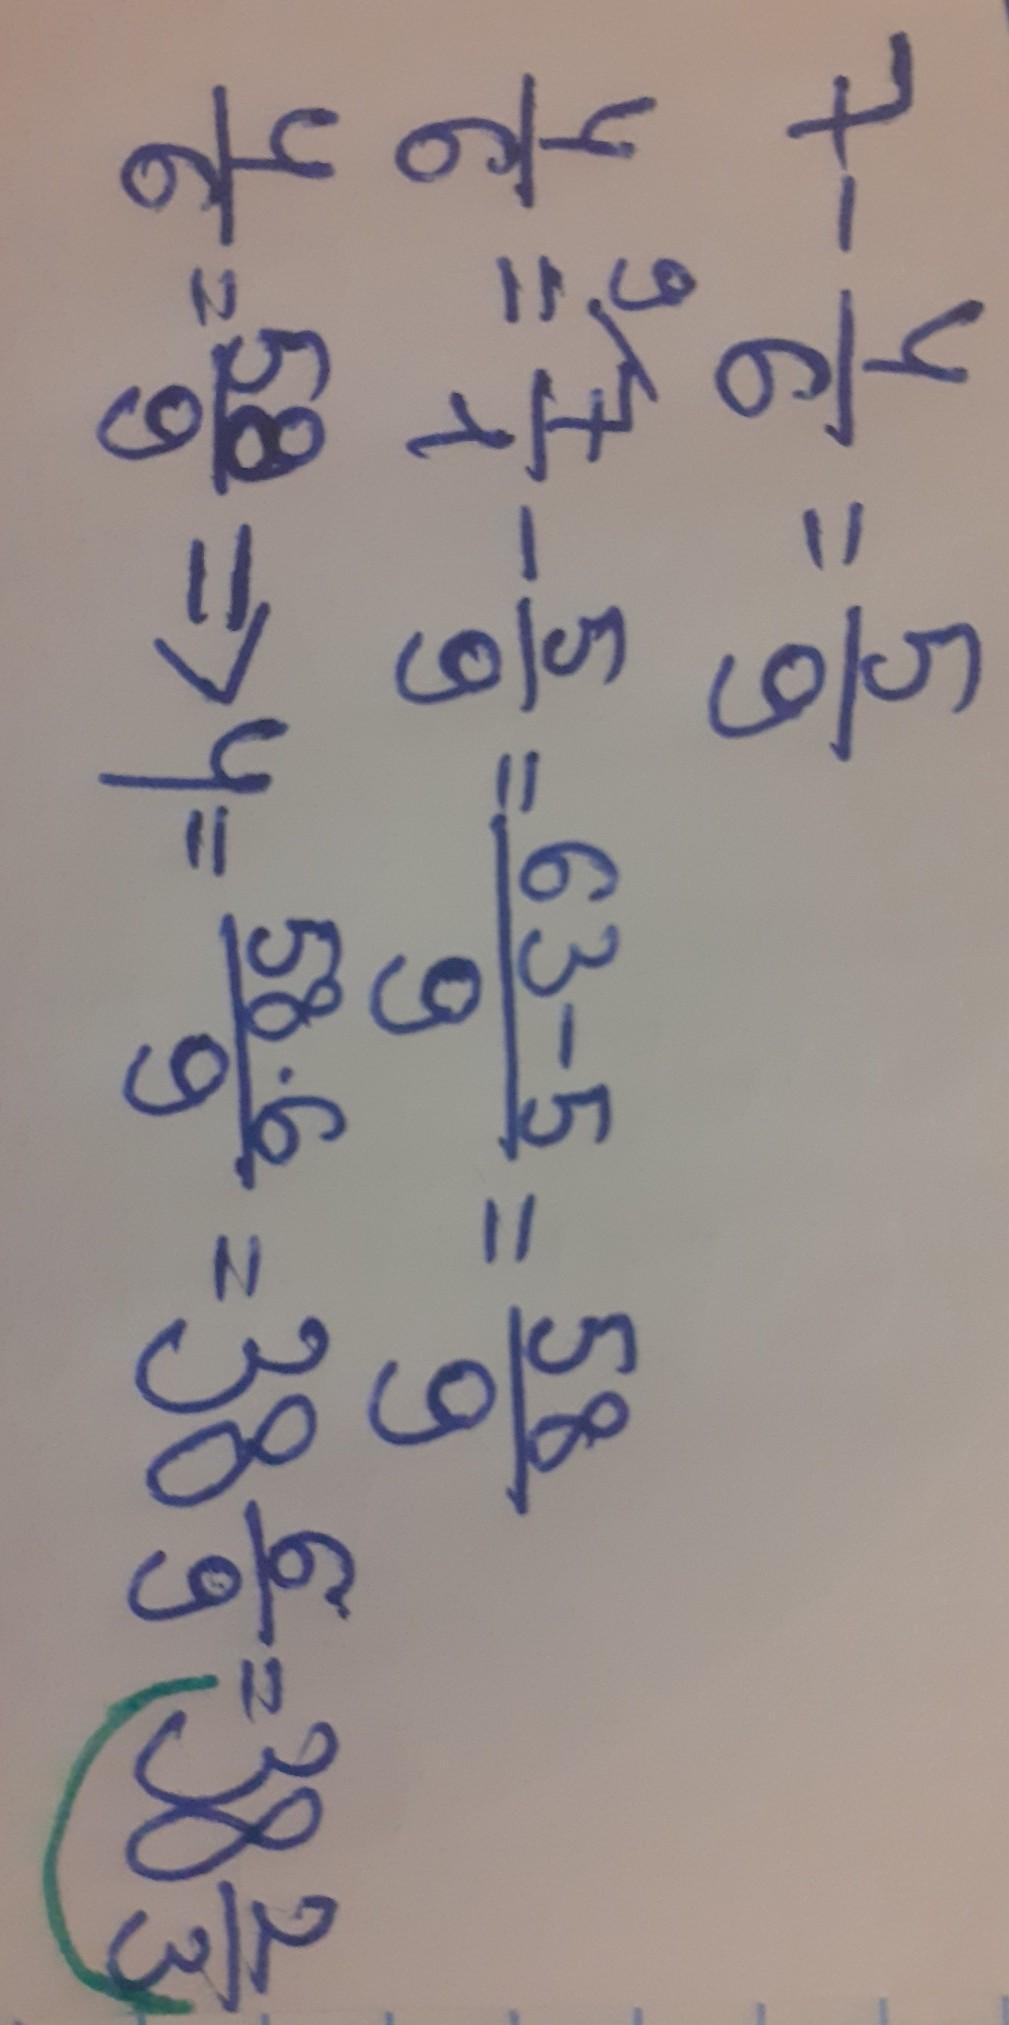 7 - y/6 = 5/9
y/6 = 9/ 7/1 - 5/9 = 63-5/9 = 58/9
y/6 = 58/9 ⇒ y = 58·6/9 = 38 6/9 = 38 2/3